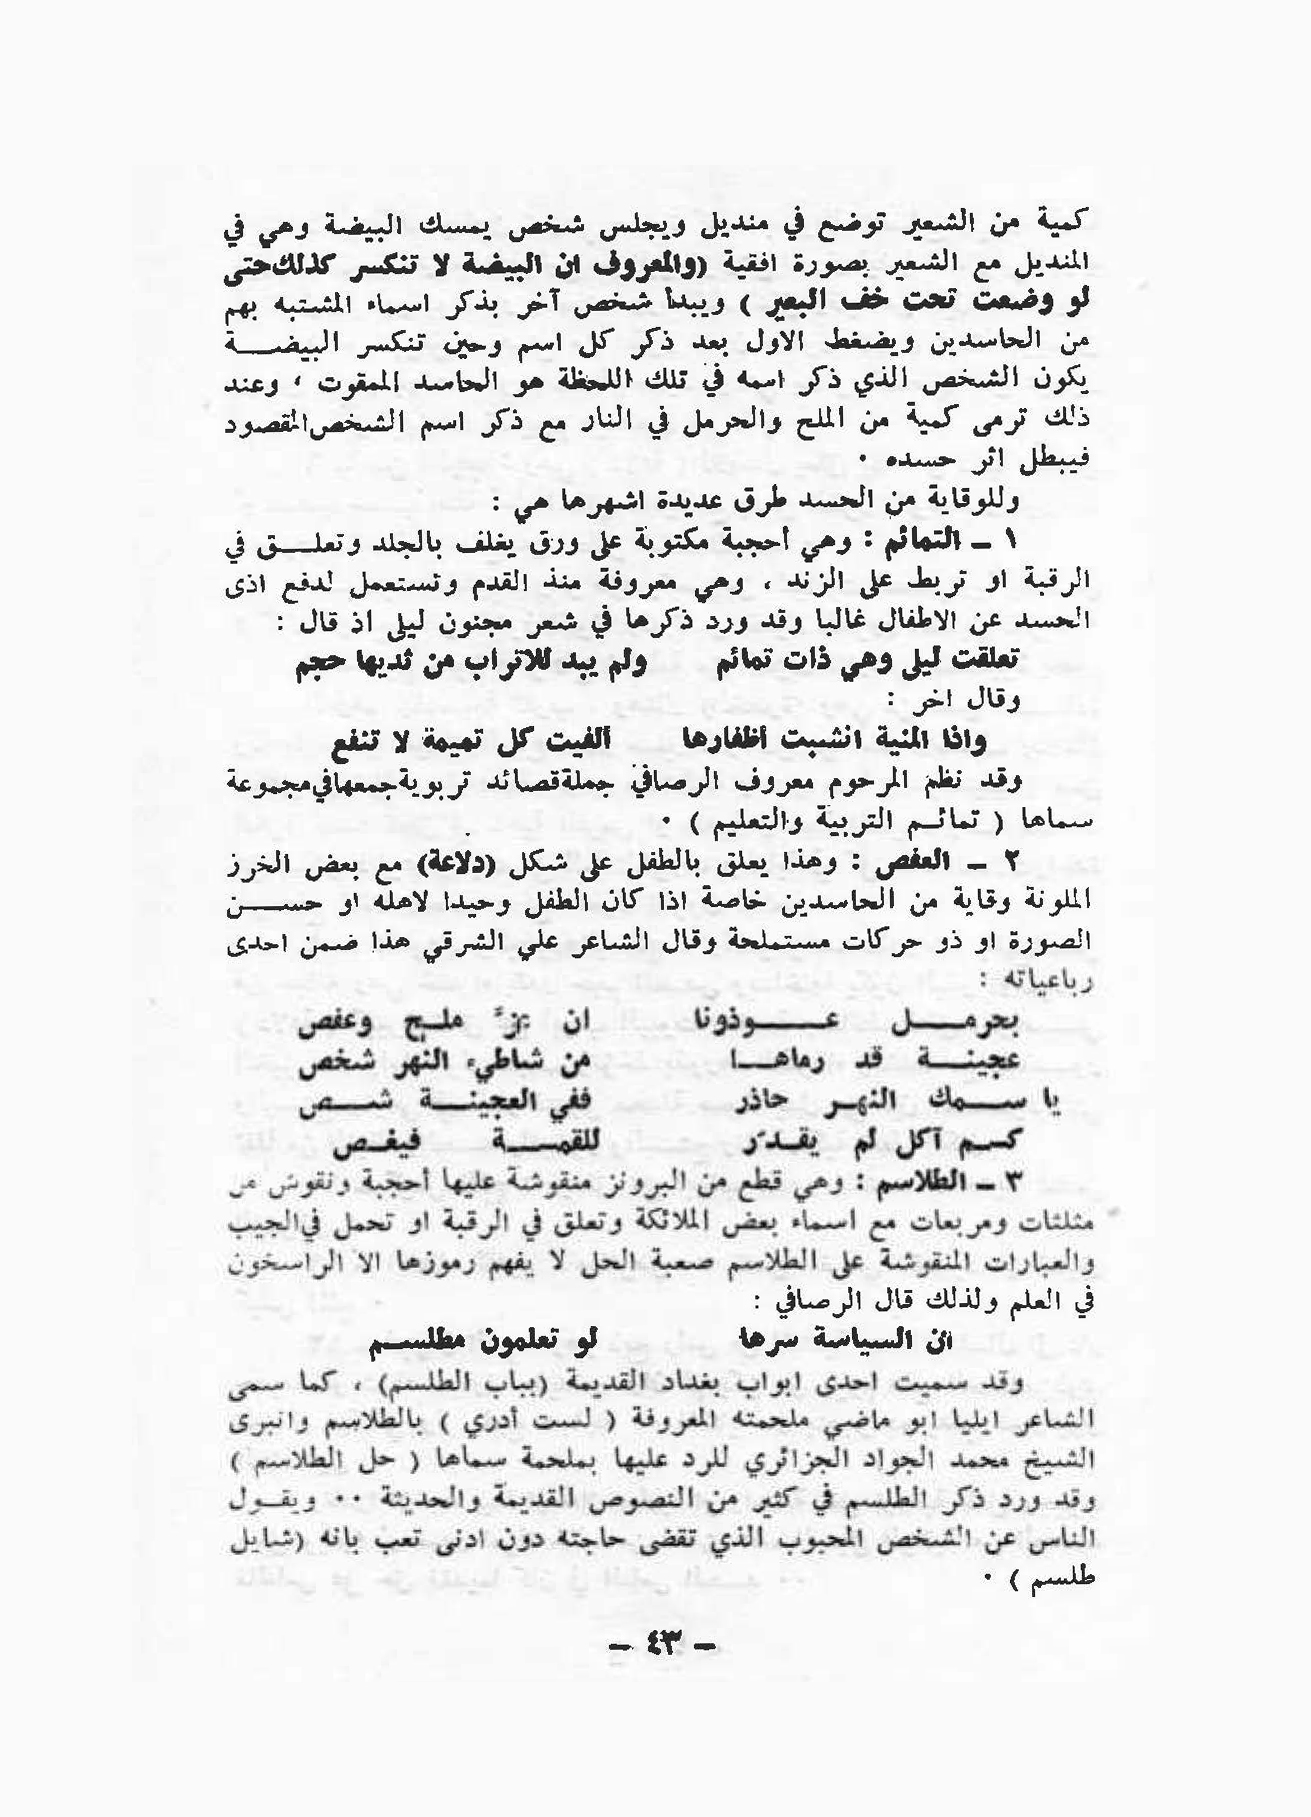 كمية من الشعير توضع في منديل ويجلس شخص يمسك البيضة وهي في
المنديل مع الشعير بصورة افقية (والمعروف ان البيضة لا تنكسر كذلك حتى
لو وضعت تحت خف البعير ) ويبدأ شخص آخر بذكر اسماء المشتبه بهم
من الحاسدين ويضغط الاول بعد ذكر كل اسم وحين تنكسر البيضــة
يكون الشخص الذي ذكر اسمه في تلك اللحظة هو الحاسد الممقوت ، وعند
ذلك ترمى كمية من الملح والحرمل في النار مع ذكر اسم الشخص المقصود
فيبطل اثر حسده ٠
وللوقاية من الحسد طرق عديدة اشهرها هي :
١ ـ التمائم : وهي أحجبة مكتوبة على ورق يغلف بالجلد وتعلــق في
الرقبة او تربط على الزند ، وهي معروفة منذ القدم وتستعمل لدفع اذى
الحسد عن الاطفال غالبا وقد ورد ذكرها في شعر مجنون ليلى اذ قال :
تعلقت ليلى وهي ذات تمائم ولم يبد للاتراب من ثديها حجم
وقال اخر :
واذا المنية انشبت أظفارها ألفيت كل تميمة لا تنفع
وقد نظم المرحوم معروف الرصافي جملة قصائد تربوية جمعها في مجموعة
سماها ( تمائــم التربية والتعليم ) ٠
٢ ـ العفص : وهذا يعلق بالطفل على شكل (دلاعة) مع بعض الخرز
الملونة وقاية من الحاسدين خاصة اذا كان الطفل وحيدا لاهله او حســن
الصورة او ذو حركات مستملحة وقال الشاعر علي الشرقي هذا ضمن احدى
رباعياته :
بحرمـــل عـــوذونا ان عزّ ملــح وعفص
عجينــة قد رماهــا من شاطيء النهر شخص
يا ســمك النهـر حاذر ففي العجينــة شــص
كــم آكل لم يقــدّر للقمــة فيغـص
٣ ـ الطلاسم : وهي قطع من البرونز منقوشة عليها أحجبة ونقوش من
مثلثات ومربعات مع اسماء بعض الملائكة وتعلق في الرقبة او تحمل في الجيب
والعبارات المنقوشة على الطلاسم صعبة الحل لا يفهم رموزها الا الراسخون
في العلم ولذلك قال الرصافي :
ان السياسة سرها لو تعلمون مطلســم
وقد سميت احدى ابواب بغداد القديمة (بباب الطلسم) ، كما سمى
الشاعر ايليا ابو ماضي ملحمته المعروفة ( لست أدري ) بالطلاسم وانبرى
الشيخ محمد الجواد الجزائري للرد عليها بملحمة سماها ( حل الطلاسم )
وقد ورد ذكر الطلسم في كثير من النصوص القديمة والحديثة ٠٠ ويقــول
الناس عن الشخص المحبوب الذي تقضى حاجته دون ادنى تعب بانه (شايل
طلسم ) ٠
ـ ٤٣ ـ